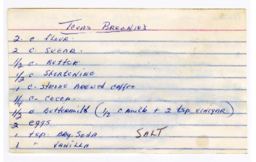 Texas Brownies
2 c. flour
2 c. sugar
1/2 c. butter
1/2 c. shortening
1 c. strong brewed coffee
1/4 c. cocoa
1/2 c. buttermilk (1/2 c milk + 2 tsp vinegar)
2 eggs
1 tsp. bkg. soda SALT
1 " vanilla